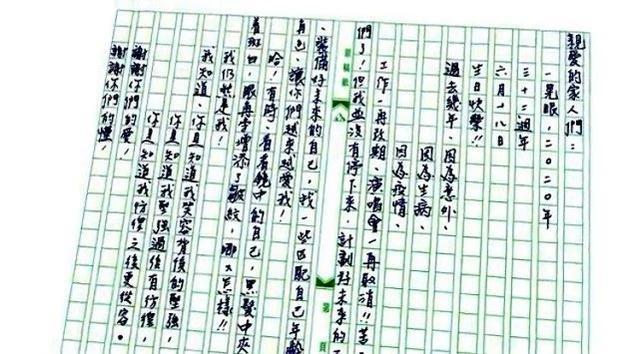 親愛的家人們：
一晃眼，二〇二〇年
三十二週年
六月十八日
生日快樂!!
過去幾年，因為意外、
因為生病、
因為疫情、
工作一再改期、演唱會一再取消!!苦
們了！但我並沒有停下來，計劃好未來的
、裝備好未來的自己，找一些匹配自己年齡
自己，讓你們越來越愛我！
哈！有時，看看鏡中的自己，黑髮中夾
著斑白，眼角又增添了皺紋，哪又怎樣!!
我仍然是我！
我知道、你是知道我笑容背後的堅強，
你是知道我堅強過後有彷徨，
你是知道我彷徨之後更從容。
謝謝你們的愛！
謝謝你們的懂！
第 頁